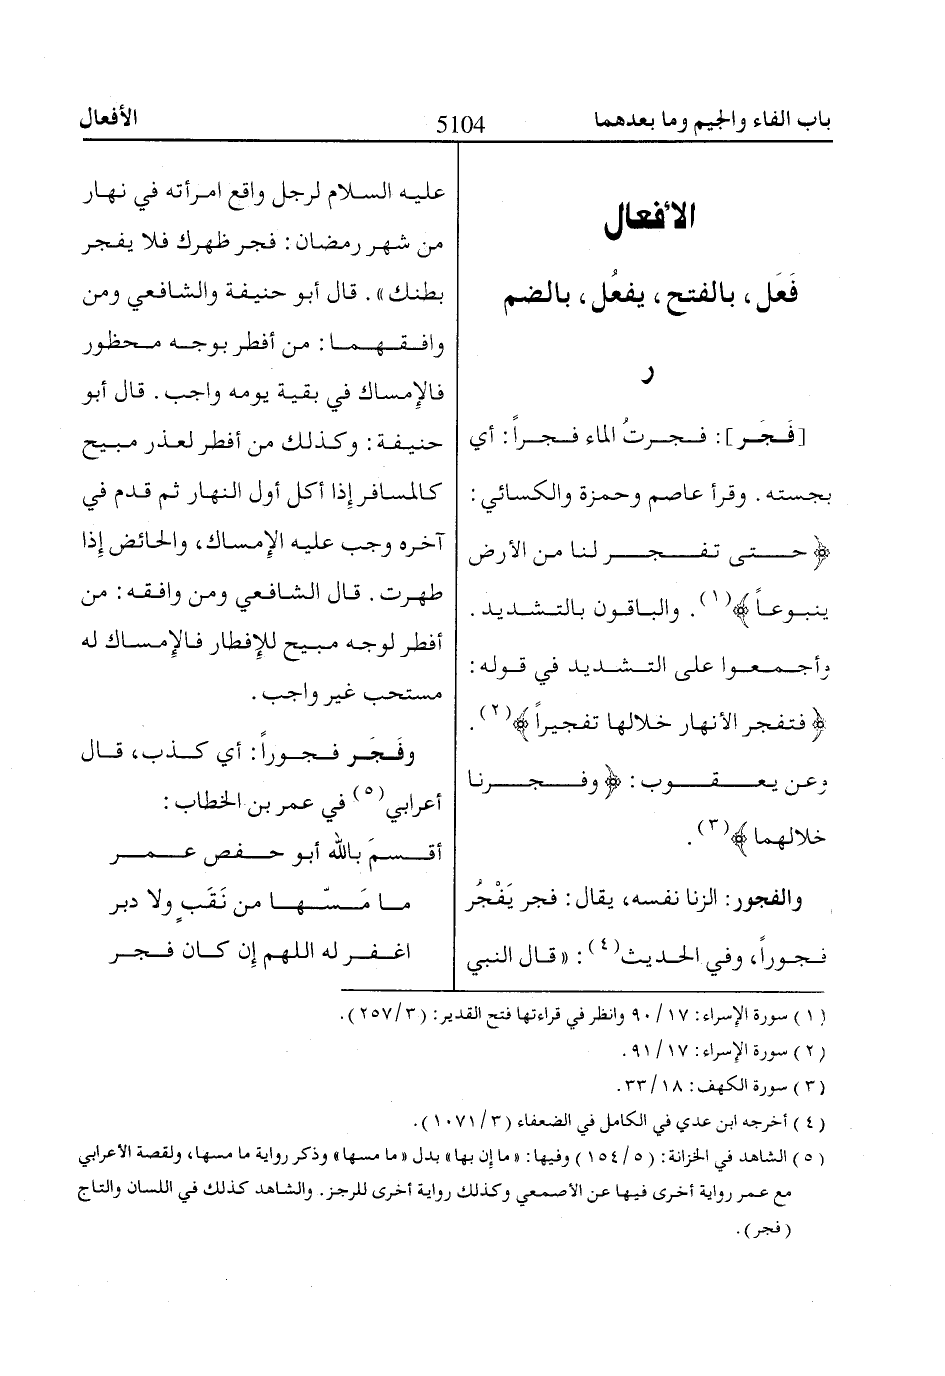 باب الفاء والجيم وما بعدهما 5104 الأفعال
الأفعال
فَعَل، بالفتح، يفعُل، بالضم
ر
[فَجَر]: فجرتُ الماء فجراً: أي
بجسته. وقرأ عاصم وحمزة والكسائي:
﴿حتى تفجر لنا من الأرض
ينبوعاً﴾(١). والباقون بالتشديد.
وأجمعوا على التشديد في قوله:
﴿فتفجر الأنهار خلالها تفجيراً﴾(٢).
وعن يعقوب: ﴿وفجرنا
خلالهما﴾(٣).
والفجور: الزنا نفسه، يقال: فجر يَفْجُر
فجوراً، وفي الحديث(٤): «قال النبي
عليه السلام لرجل واقع امرأته في نهار
من شهر رمضان: فجر ظهرك فلا يفجر
بطنك». قال أبو حنيفة والشافعي ومن
وافقهما: من أفطر بوجه محظور
فالإمساك في بقية يومه واجب. قال أبو
حنيفة: وكذلك من أفطر لعذر مبيح
كالمسافر إذا أكل أول النهار ثم قدم في
آخره وجب عليه الإمساك، والحائض إذا
طهرت. قال الشافعي ومن وافقه: من
أفطر لوجه مبيح للإفطار فالإمساك له
مستحب غير واجب.
وفَجَر فجوراً: أي كذب، قال
أعرابي(٥) في عمر بن الخطاب:
أقسمَ بالله أبو حفص عمر
ما مَسّها من نَقَبٍ ولا دبر
اغفر له اللهم إن كان فجر
(١) سورة الإسراء: ١٧/ ٩٠ وانظر في قراءتها فتح القدير: (٣/ ٢٥٧).
(٢) سورة الإسراء: ١٧/ ٩١.
(٣) سورة الكهف: ١٨/ ٣٣.
(٤) أخرجه ابن عدي في الكامل في الضعفاء (٣/ ١٠٧١).
(٥) الشاهد في الخزانة: (٥/ ١٥٤) وفيها: «ما إن بها» بدل «ما مسها» وذكر رواية ما مسها، ولقصة الأعرابي
مع عمر رواية أخرى فيها عن الأصمعي وكذلك رواية أخرى للرجز. والشاهد كذلك في اللسان والتاج
(فجر).